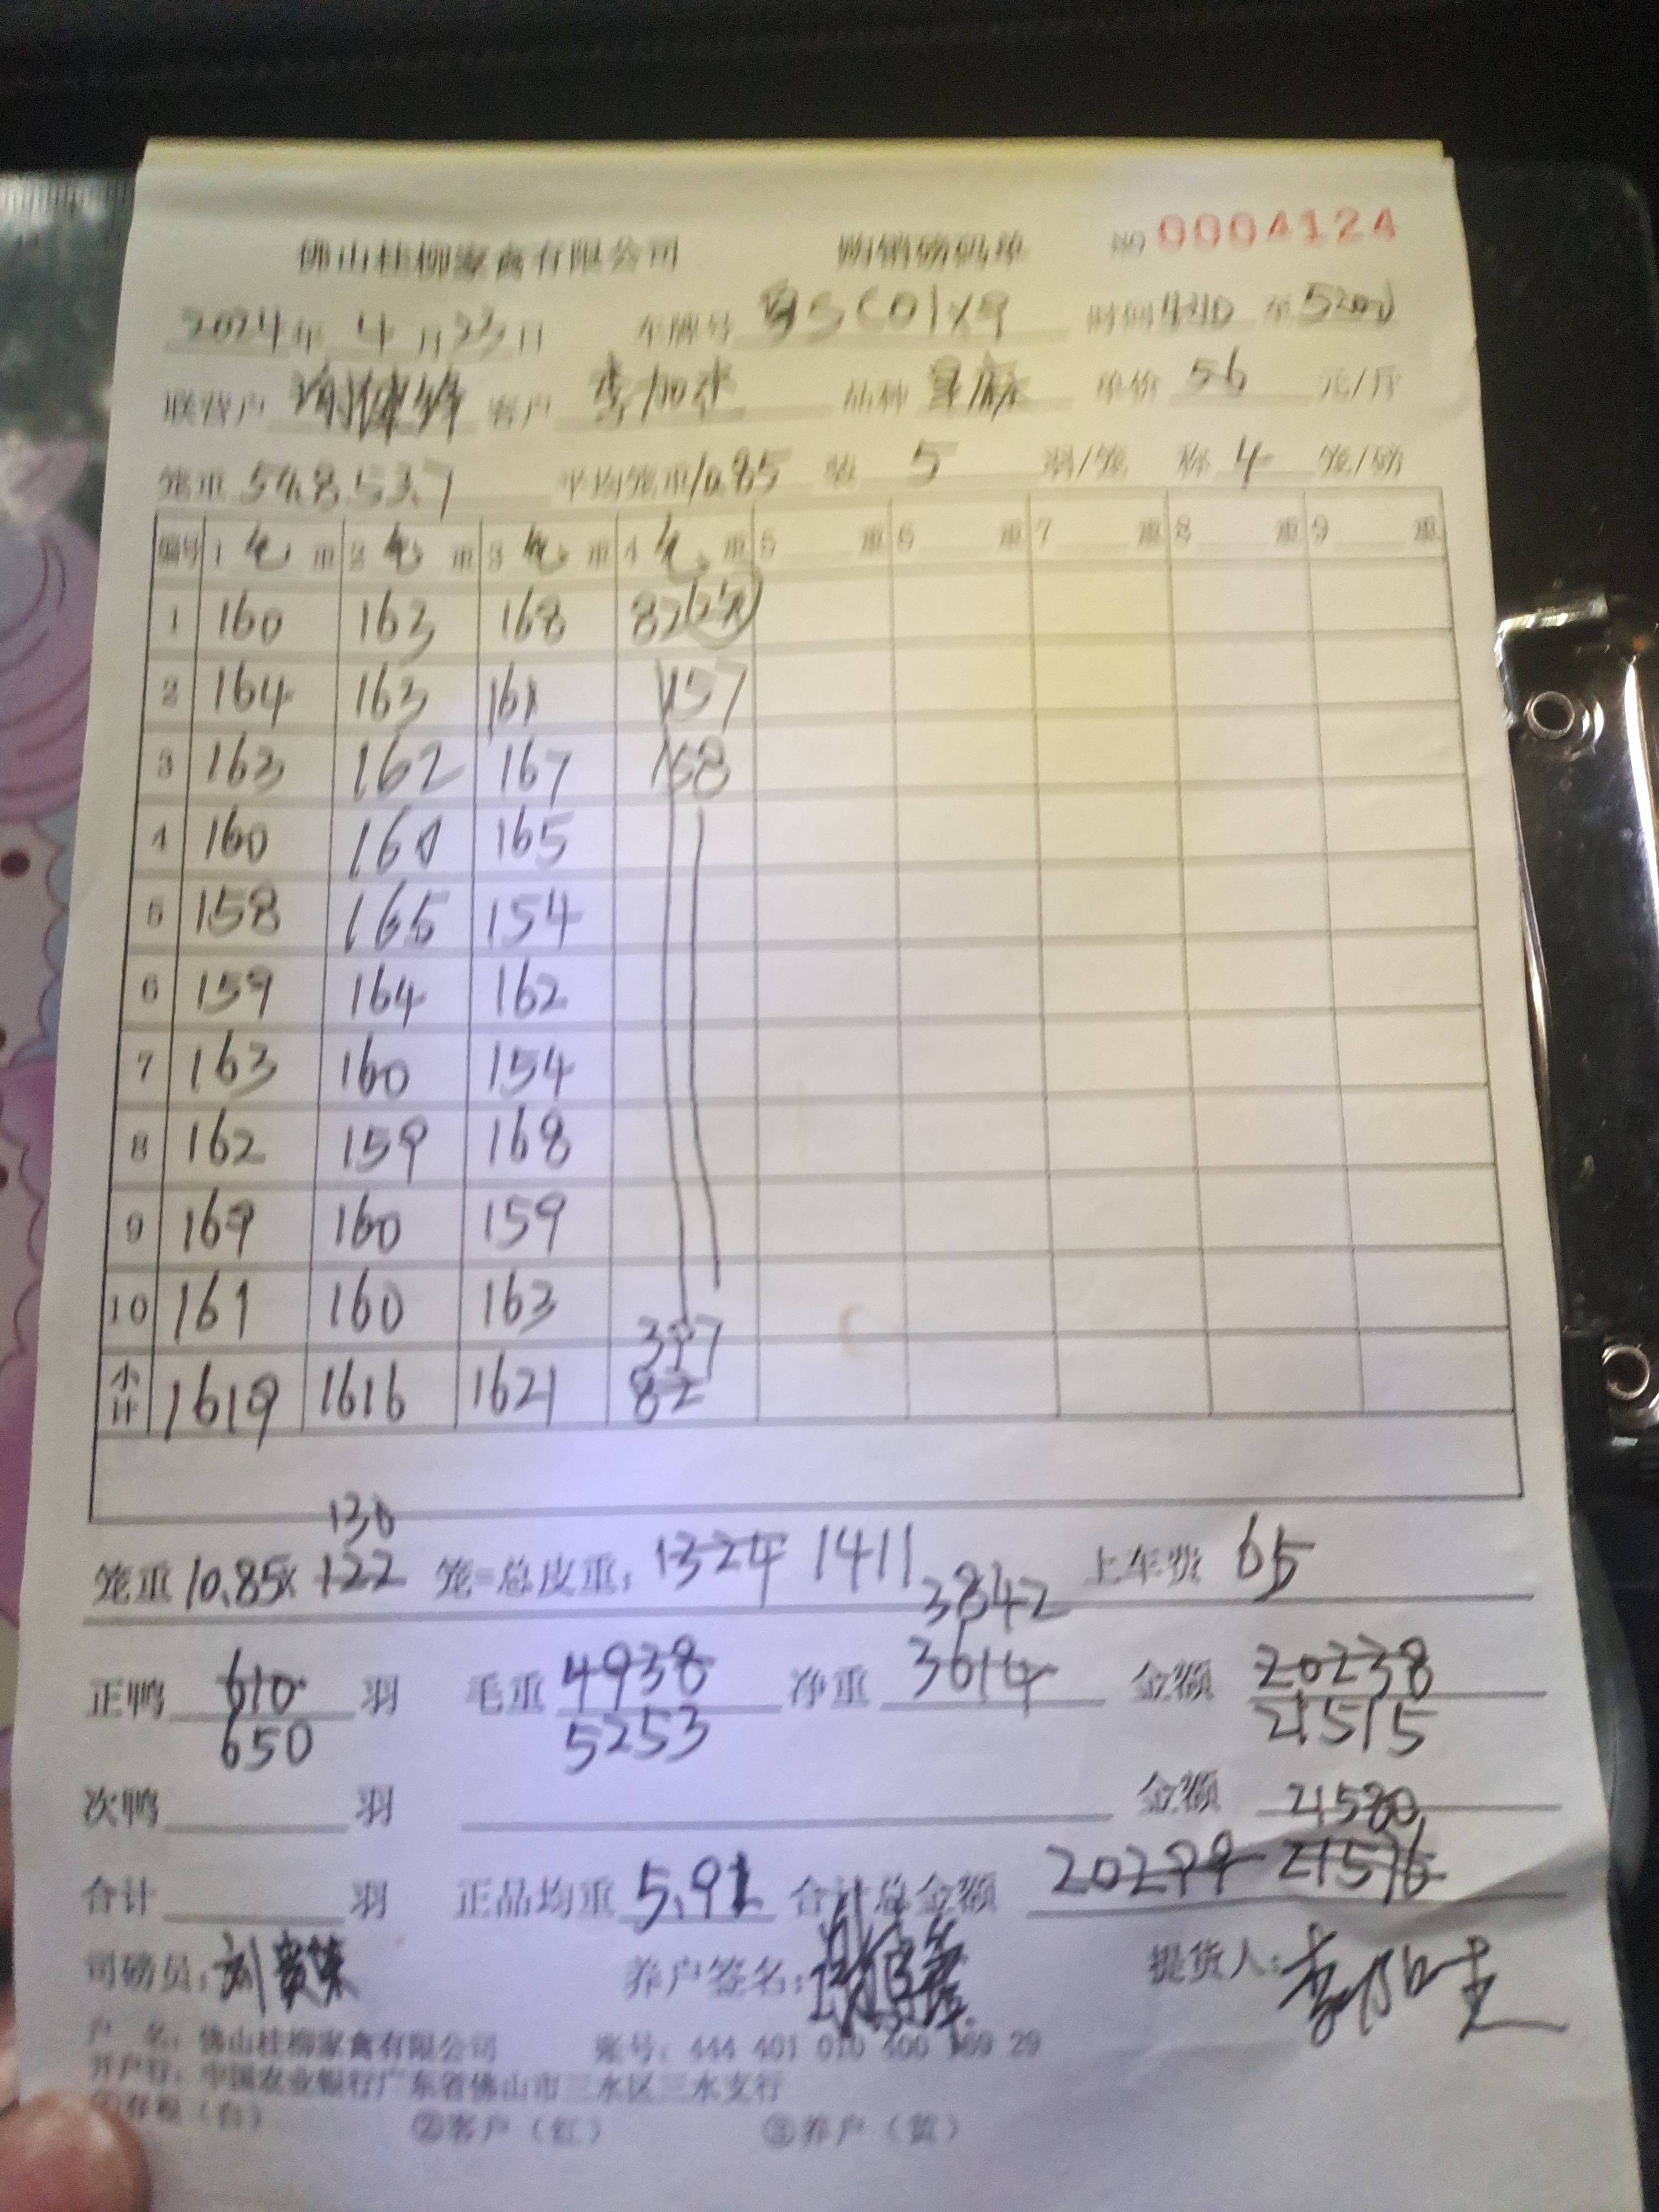 佛山桂柳家禽有限公司 购销磅码单 NO 0004124
2024年 4月23日 车牌号 时间 440 至 520
联营户 客户 品种 单价 56 元/斤
笼重 54.8 53.7 平均笼重 10.85 装 5 羽/笼 称 4 笼/磅
编号 1 毛 重 2 毛 重 3 毛 重 4 毛 重 5 重 6 重 7 重 8 重 9 重
1 160 163 168 82
2 164 163 161 157
3 163 162 167 158
4 160 160 165
5 158 165 154
6 159 164 162
7 163 160 154
8 162 159 168
9 169 160 159
10 161 160 163
397
小计 1619 1616 1621 82
130
笼重 10.85x 122 笼=总皮重: 1324 1411 上车费 65
3842
正鸭 610 羽 毛重 4938 净重 3614 金额 20238
650 5253 21515
次鸭 羽 金额 21580
合计 羽 正品均重 5.91 合计总金额 20299 21576
司磅员: 养户签名: 提货人:
户 名: 佛山桂柳家禽有限公司 账号: 444 401 010 400 169 29
开户行: 中国农业银行广东省佛山市三水区三水支行
①存根(白) ②客户(红) ③养户(黄)